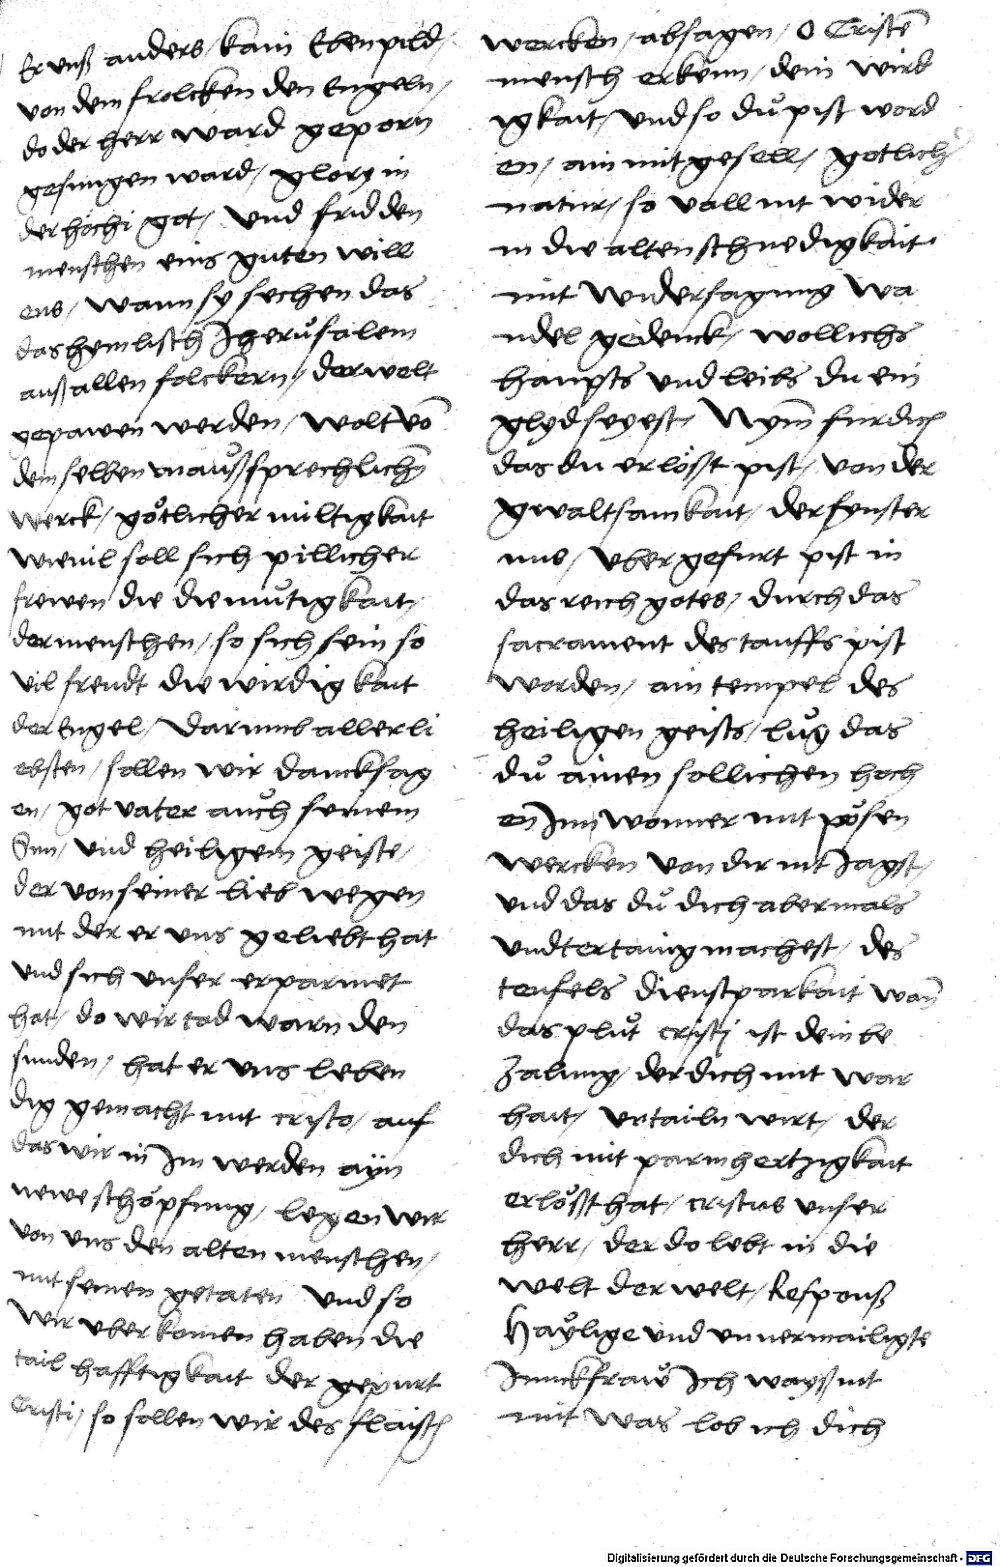 Er vnß anders / kain Ebenpild /
von dem frolcken den Engeln /
do der herr ward geporn
gesungen ward / glory in
der hochi got / Vnd frid den
menschen eins guten will
ens / Wann sy sechen das
das hymlisch Jherusalem
auß allen folckern / der welt
gepawen werden / Wolt vō
dem selben vnaußsprechlichn̄
werck / gőtlicher miltigkait
wieuil soll sich pillicher
frewen die diemu̇tigkait /
der menschen / so sich sein so
vil frewdt die wirdigkait
der Engel / Darumb allerli
ebsten / sollen wir dancksag
en / got vater auch seinem
Sun / Vnd heiligem geiste /
der von seiner lieb wegen
mit der er vns geliebt hat
vnd sich vnser erparmet
hat / do wir tod warn den
sunden / hat er vns leben
dig gemacht mit cristo / auf
das wir in Im werden ayn
newe schöpfung / legen wir
von vns den alten menschen /
mit seinen getaten Vnd so
wir vberkomen haben die
tail hafftigkait der gepurt
Cristi / so sollen wir des flaisch
wercken / absagen / O Cristē
mensch erkenn / dein wird
igkait / vnd so du̇ pist word
en / ain mitgesell / gotlich
natur / so vall nit wider
in die alten schnedigkait
mit Widersagung Wa
ndel gedenck / wollichs
haupts vnd leibs du ein
glyd seyest / Nym̄ fur dich
das du erlőßt pist / von der
gwaltsamkait / der fynster
nus / vber gefurt pist in
das reich gotes / durch das
sacrament des tauffs pist
worden / ain tempel des
heiligen geists / lu̇g das
du̇ ainen sollichen hoch
en Inn woner mit pősen
wercken von dir nit Jagst /
vnd das du̇ dich abermals
vndtertainig machest / des
teufels dienstparkait wan̄
das plu̇t cristi ist dein be
zalung / der dich mit war
hait / vrtailn wirt / der
dich mit parmhertzigkait
erlőßt hat / cristus vnser
herr / der do lebt in die
welt der welt / Respons
Haylige vnd vnuermailigte
Junckfraw Ich wayß nit
mit was lob ich dich
Digitalisierung gefördert durch die Deutsche Forschungsgemeinschaft - DFG